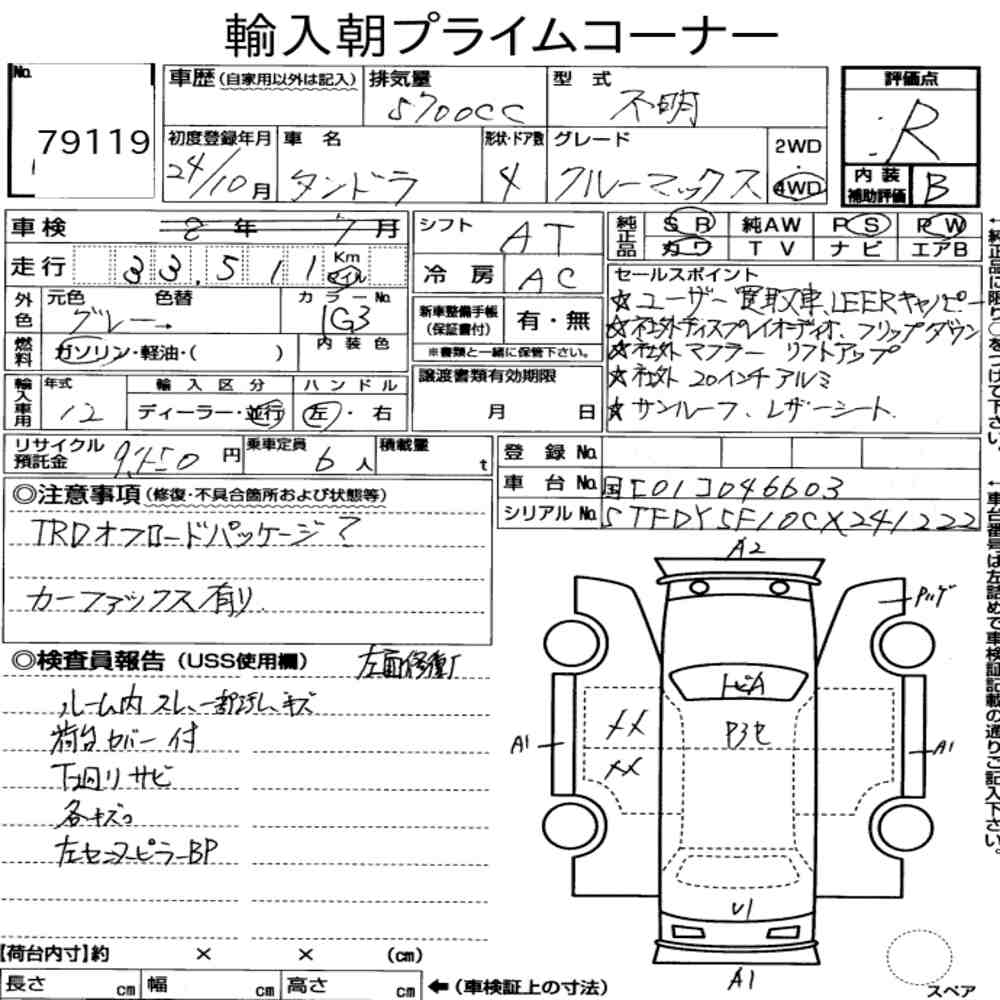 輸入朝プライムコーナー
No.
79119
車歴(自家用以外は記入)
排気量 5700CC
型式 不明
評価点 R
初度登録年月 24/10月
車名 タンドラ
形状・ドア数 4
グレード クルーマックス
2WD
・
4WD
内装補助評価 B
車検 8年 7月
走行 33,511 Km マイル
シフト AT
冷房 AC
純正品 SR 純AW PS PW
カワ TV ナビ エアB
外色 元色 色替 グレー→
カラーNo. 1G3
内装色
燃料 ガソリン・軽油・( )
新車整備手帳(保証書付) 有・無
※書類と一緒に保管下さい。
譲渡書類有効期限
月 日
セールスポイント
☆ユーザー買取車、LEERキャノピー
☆社外ディスプレイオーディオ、フリップダウン
☆社外マフラー リフトアップ
☆社外 20インチアルミ
☆サンルーフ、レザーシート、
輸入車用 年式 12
輸入区分 ディーラー・並行
ハンドル 左・右
リサイクル預託金 円
乗車定員 6人
積載量 t
登録No.
車台No. 国[01]046603
シリアルNo. 5TFDY5F10CX241222
◎注意事項(修復・不具合箇所および状態等)
TRDオフロードパッケージ?
カーファックス有り
◎検査員報告(USS使用欄)
ルーム内スレ、一部汚レ、キズ
荷台カバー付
下廻りサビ
各キズ
左センターピラーBP
A2
A1
A1
U1
A1
××
××
スペア
【荷台内寸】約 × × (cm)
長さ cm 幅 cm 高さ cm ←(車検証上の寸法)
←車台番号は左詰めで車検証記載の通りご記入下さい。